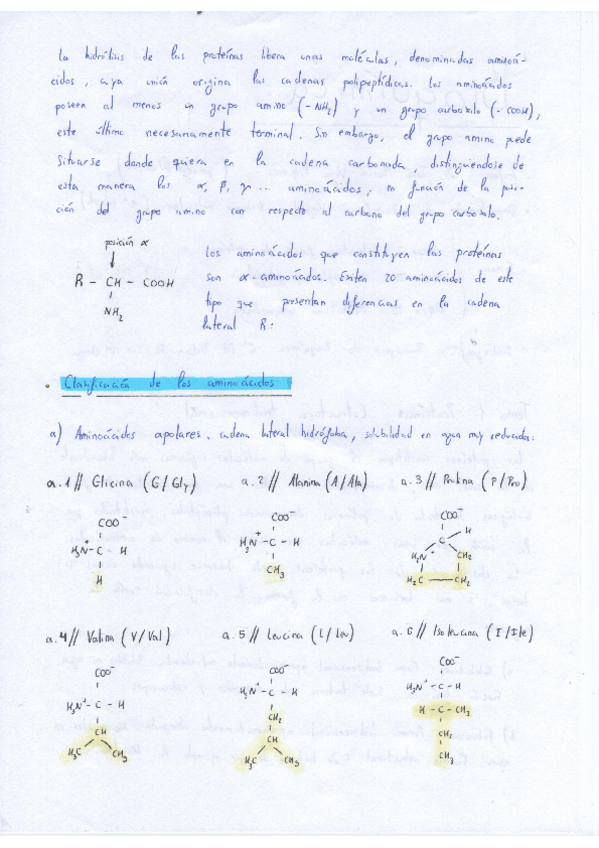 La hidrólisis de las proteínas libera unas moléculas, denominadas aminoá-
cidos, cuya unión origina las cadenas polipeptídicas. Los aminoácidos
poseen al menos un grupo amino (-NH₂) y un grupo carboxilo (-COOH),
este último necesariamente terminal. Sin embargo, el grupo amino puede
situarse donde quiera en la cadena carbonada, distinguiéndose de
esta manera los α, β, γ... aminoácidos, en función de la posi-
ción del grupo amino con respecto al carbono del grupo carboxilo.
posición α
R - CH - COOH
NH₂
Los aminoácidos que constituyen las proteínas
son α-aminoácidos. Existen 20 aminoácidos de este
tipo que presentan diferencias en la cadena
lateral R:
· Clasificación de los aminoácidos
a) Aminoácidos apolares, cadena lateral hidrófoba, solubilidad en agua muy reducida:
a.1// Glicina (G/Gly) a.2// Alanina (A/Ala) a.3// Prolina (P/Pro)
COO⁻
H₃N⁺-C-H
H
COO⁻
H₃N⁺-C-H
CH₃
COO⁻
C H
H₂N⁺ CH₂
H₂C CH₂
a.4// Valina (V/Val) a.5// Leucina (L/Leu) a.6// Isoleucina (I/Ile)
COO⁻
H₃N⁺-C-H
CH
H₃C CH₃
COO⁻
H₃N⁺-C-H
CH₂
CH
H₃C CH₃
COO⁻
H₃N⁺-C-H
H-C-CH₃
CH₂
CH₃